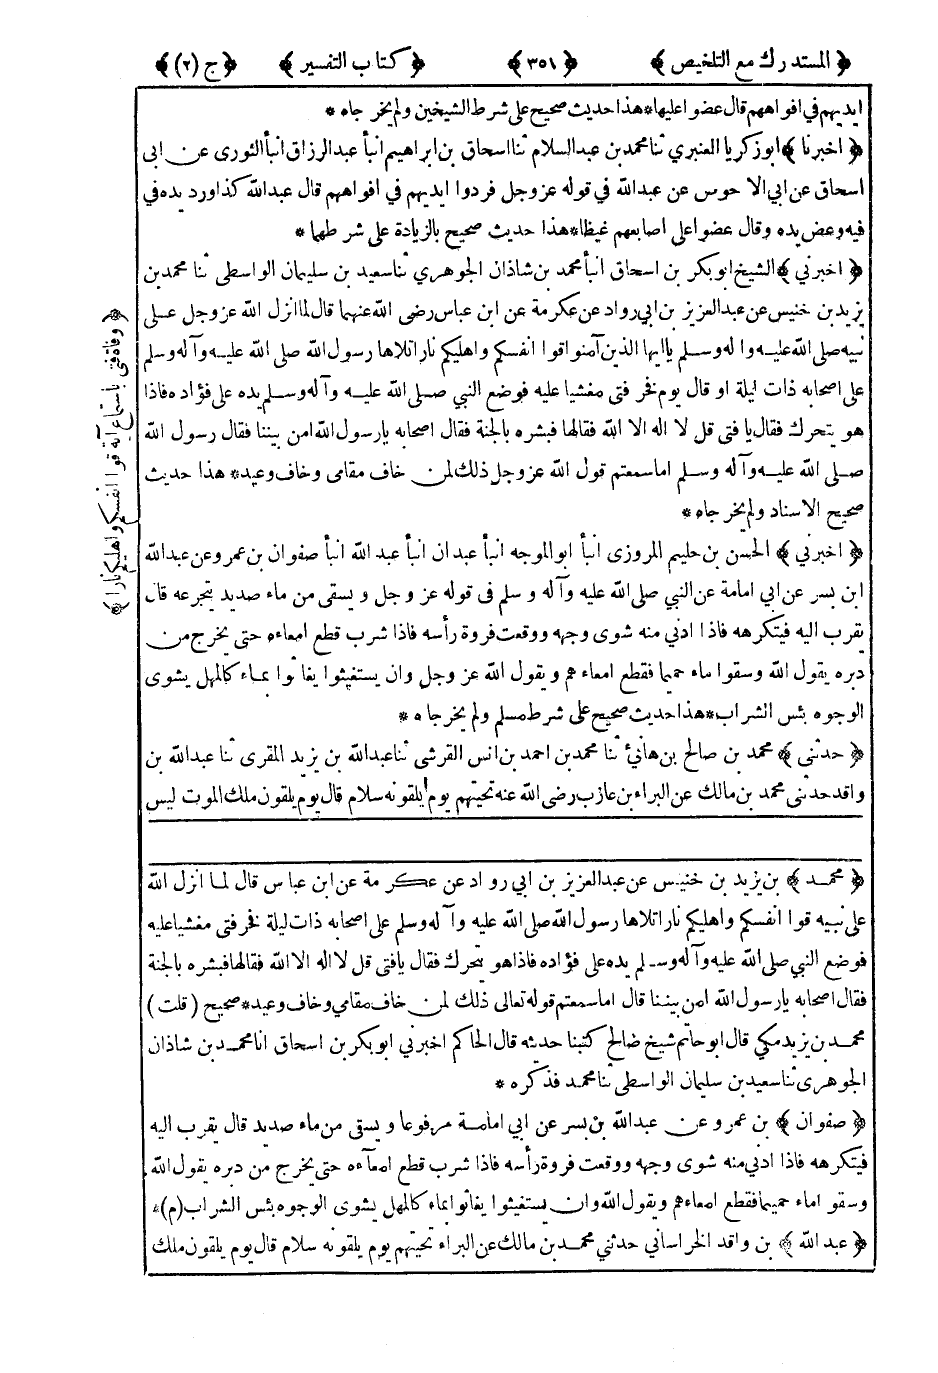 ﴿ المستدرك مع التلخيص ﴾ ﴿ ٣٥١ ﴾ ﴿ كتاب التفسير ﴾ ﴿ ج (٢) ﴾
ايديهم في افواههم قال عضوا عليها * هذا حديث صحيح على شرط الشيخين ولم يخرجاه *
﴿ اخبرنا ﴾ ابو زكريا العنبري ثنا محمد بن عبد السلام ثنا اسحاق بن ابراهيم انبأ عبد الرزاق انبأ الثورى عن ابى
اسحاق عن ابي الاحوص عن عبد الله في قوله عز وجل فردوا ايديهم في افواههم قال عبد الله كذا ورد يده في
فيه وعض يده وقال عضوا على اصابعهم غيظا * هذا حديث صحيح بالزيادة على شرطهما *
﴿ اخبرني ﴾ الشيخ ابو بكر بن اسحاق انبأ محمد بن شاذان الجوهري ثنا سعيد بن سليمان الواسطى ثنا محمد بن
يزيد بن خنيس عن عبد العزيز بن ابي رواد عن عكرمة عن ابن عباس رضى الله عنهما قال لما انزل الله عز وجل على
نبيه صلى الله عليه واله وسلم يا ايها الذين آمنوا قوا انفسكم واهليكم نارا تلاها رسول الله صلى الله عليه وآله وسلم
على اصحابه ذات ليلة او قال يوم فخر فتى مغشيا عليه فوضع النبي صلى الله عليه وآله وسلم يده على فؤاده فاذا
هو يتحرك فقال يا فتى قل لا اله الا الله فقالها فبشره بالجنة فقال اصحابه يارسول الله امن بيننا فقال رسول الله
صلى الله عليه وآله وسلم اما سمعتم قول الله عز وجل ذلك لمن خاف مقامى وخاف وعيد * هذا حديث
صحيح الاسناد ولم يخرجاه *
﴿ اخبرني ﴾ الحسن بن حليم المروزى انبأ ابو الموجه انبأ عبدان انبأ عبد الله انبأ صفوان بن عمرو عن عبد الله
ابن بسر عن ابي امامة عن النبي صلى الله عليه وآله وسلم فى قوله عز وجل ويسقى من ماء صديد يتجرعه قال
يقرب اليه فيتكرهه فاذا ادني منه شوى وجهه ووقعت فروة رأسه فاذا شرب قطع امعاءه حتى يخرج من
دبره يقول الله وسقوا ماء حميما فقطع امعاءهم ويقول الله عز وجل وان يستغيثوا يغاثوا بماء كالمهل يشوى
الوجوه بئس الشراب * هذا حديث صحيح على شرط مسلم ولم يخرجاه *
﴿ حدثنى ﴾ محمد بن صالح بن هانئ ثنا محمد بن احمد بن انس القرشى ثنا عبد الله بن يزيد المقرى ثنا عبد الله بن
واقد حدثنى محمد بن مالك عن البراء بن عازب رضى الله عنه تحيتهم يوم يلقونه سلام قال يوم يلقون ملك الموت ليس
﴿ وفاة فتى باستماع آية قوا انفسكم واهليكم نارا ﴾
﴿ محمد ﴾ بن يزيد بن خنيس عن عبد العزيز بن ابي رواد عن عكرمة عن ابن عباس قال لما انزل الله
على نبيه قوا انفسكم واهليكم نارا تلاها رسول الله صلى الله عليه وآله وسلم على اصحابه ذات ليلة فخر فتى مغشيا عليه
فوضع النبي صلى الله عليه وآله وسلم يده على فؤاده فاذا هو يتحرك فقال يا فتى قل لا اله الا الله فقالها فبشره بالجنة
فقال اصحابه يارسول الله امن بيننا قال اما سمعتم قوله تعالى ذلك لمن خاف مقامي وخاف وعيد * صحيح (قلت)
محمد بن يزيد مكي قال ابو حاتم شيخ صالح كتبنا حديثه قال الحاكم اخبرني ابو بكر بن اسحاق انا محمد بن شاذان
الجوهرى ثنا سعيد بن سليمان الواسطى ثنا محمد فذكره *
﴿ صفوان ﴾ بن عمرو عن عبد الله بن بسر عن ابي امامة مرفوعا ويسقى من ماء صديد قال يقرب اليه
فيتكرهه فاذا ادني منه شوى وجهه ووقعت فروة رأسه فاذا شرب قطع امعآءه حتى يخرج من دبره يقول الله
وسقوا ماء حميما فقطع امعاءهم ويقول الله وان يستغيثوا يغاثوا بماء كالمهل يشوى الوجوه بئس الشراب (م) *
﴿ عبد الله ﴾ بن واقد الخراساني حدثني محمد بن مالك عن البراء تحيتهم يوم يلقونه سلام قال يوم يلقون ملك